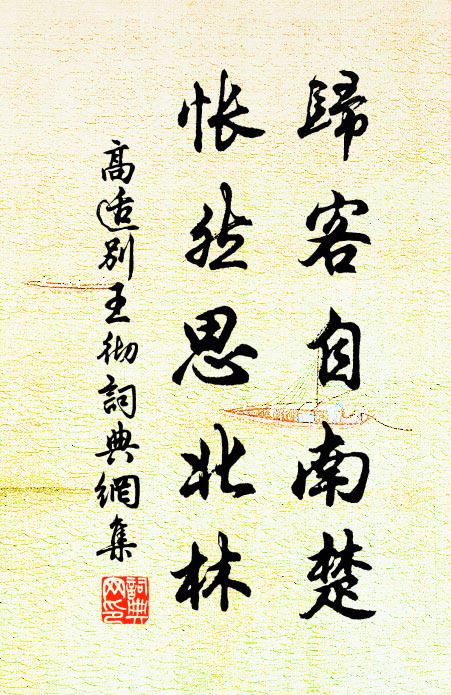 歸客自南楚
悵然思北林
高適別王彻詞典網集
詞典網印